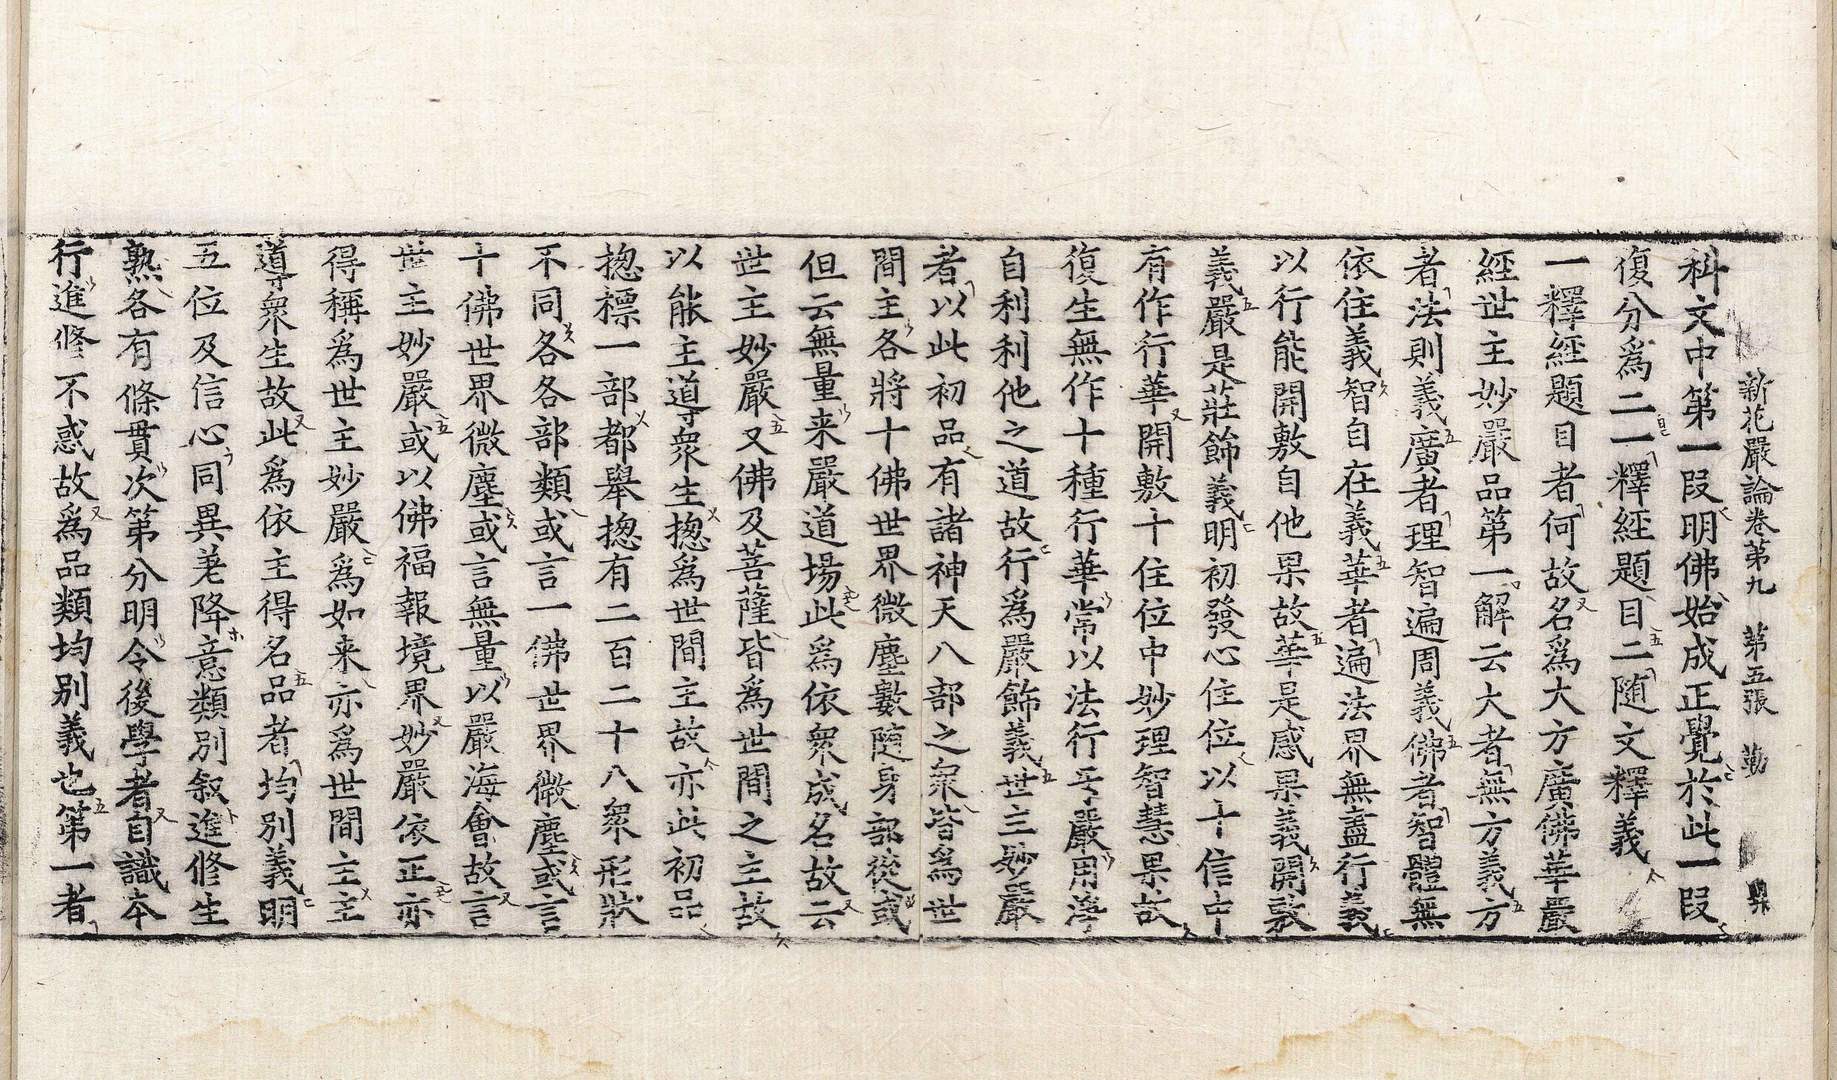 新花嚴論卷第九　第五張　勤
科文中第一段明佛始成正覺於此一段
復分爲二一釋經題目二隨文釋義
一釋經題目者何故名爲大方廣佛華嚴
經世主妙嚴品第一解云大者無方義方
者法則義廣者理智遍周義佛者智體無
依住義智自在義華者遍法界無盡行義
以行能開敷自他果故華是感果義開敷
義嚴是莊飾義明初發心住位以十信中
有作行華開敷十住位中妙理智慧果故
復生無作十種行華常以法行互嚴用淨
自利利他之道故行爲嚴飾義世主妙嚴
者以此初品有諸神天八部之衆皆爲世
間主各將十佛世界微塵數隨身部從或
但云無量来嚴道場此爲依衆成名故云
世主妙嚴又佛及菩薩皆爲世間之主故
以能主導衆生揔爲世間主故亦此初品
揔標一部都舉揔有二百二十八衆形狀
不同各各部類或言一佛世界微塵或言
十佛世界微塵或言無量以嚴海會故言
世主妙嚴或以佛福報境界妙嚴依正亦
得稱爲世主妙嚴爲如来亦爲世間主主
導衆生故此爲依主得名品者均別義明
五位及信心同異差降意類別叙進修生
熟各有條貫次第分明令後學者自識本
行進修不惑故爲品類均別義也第一者